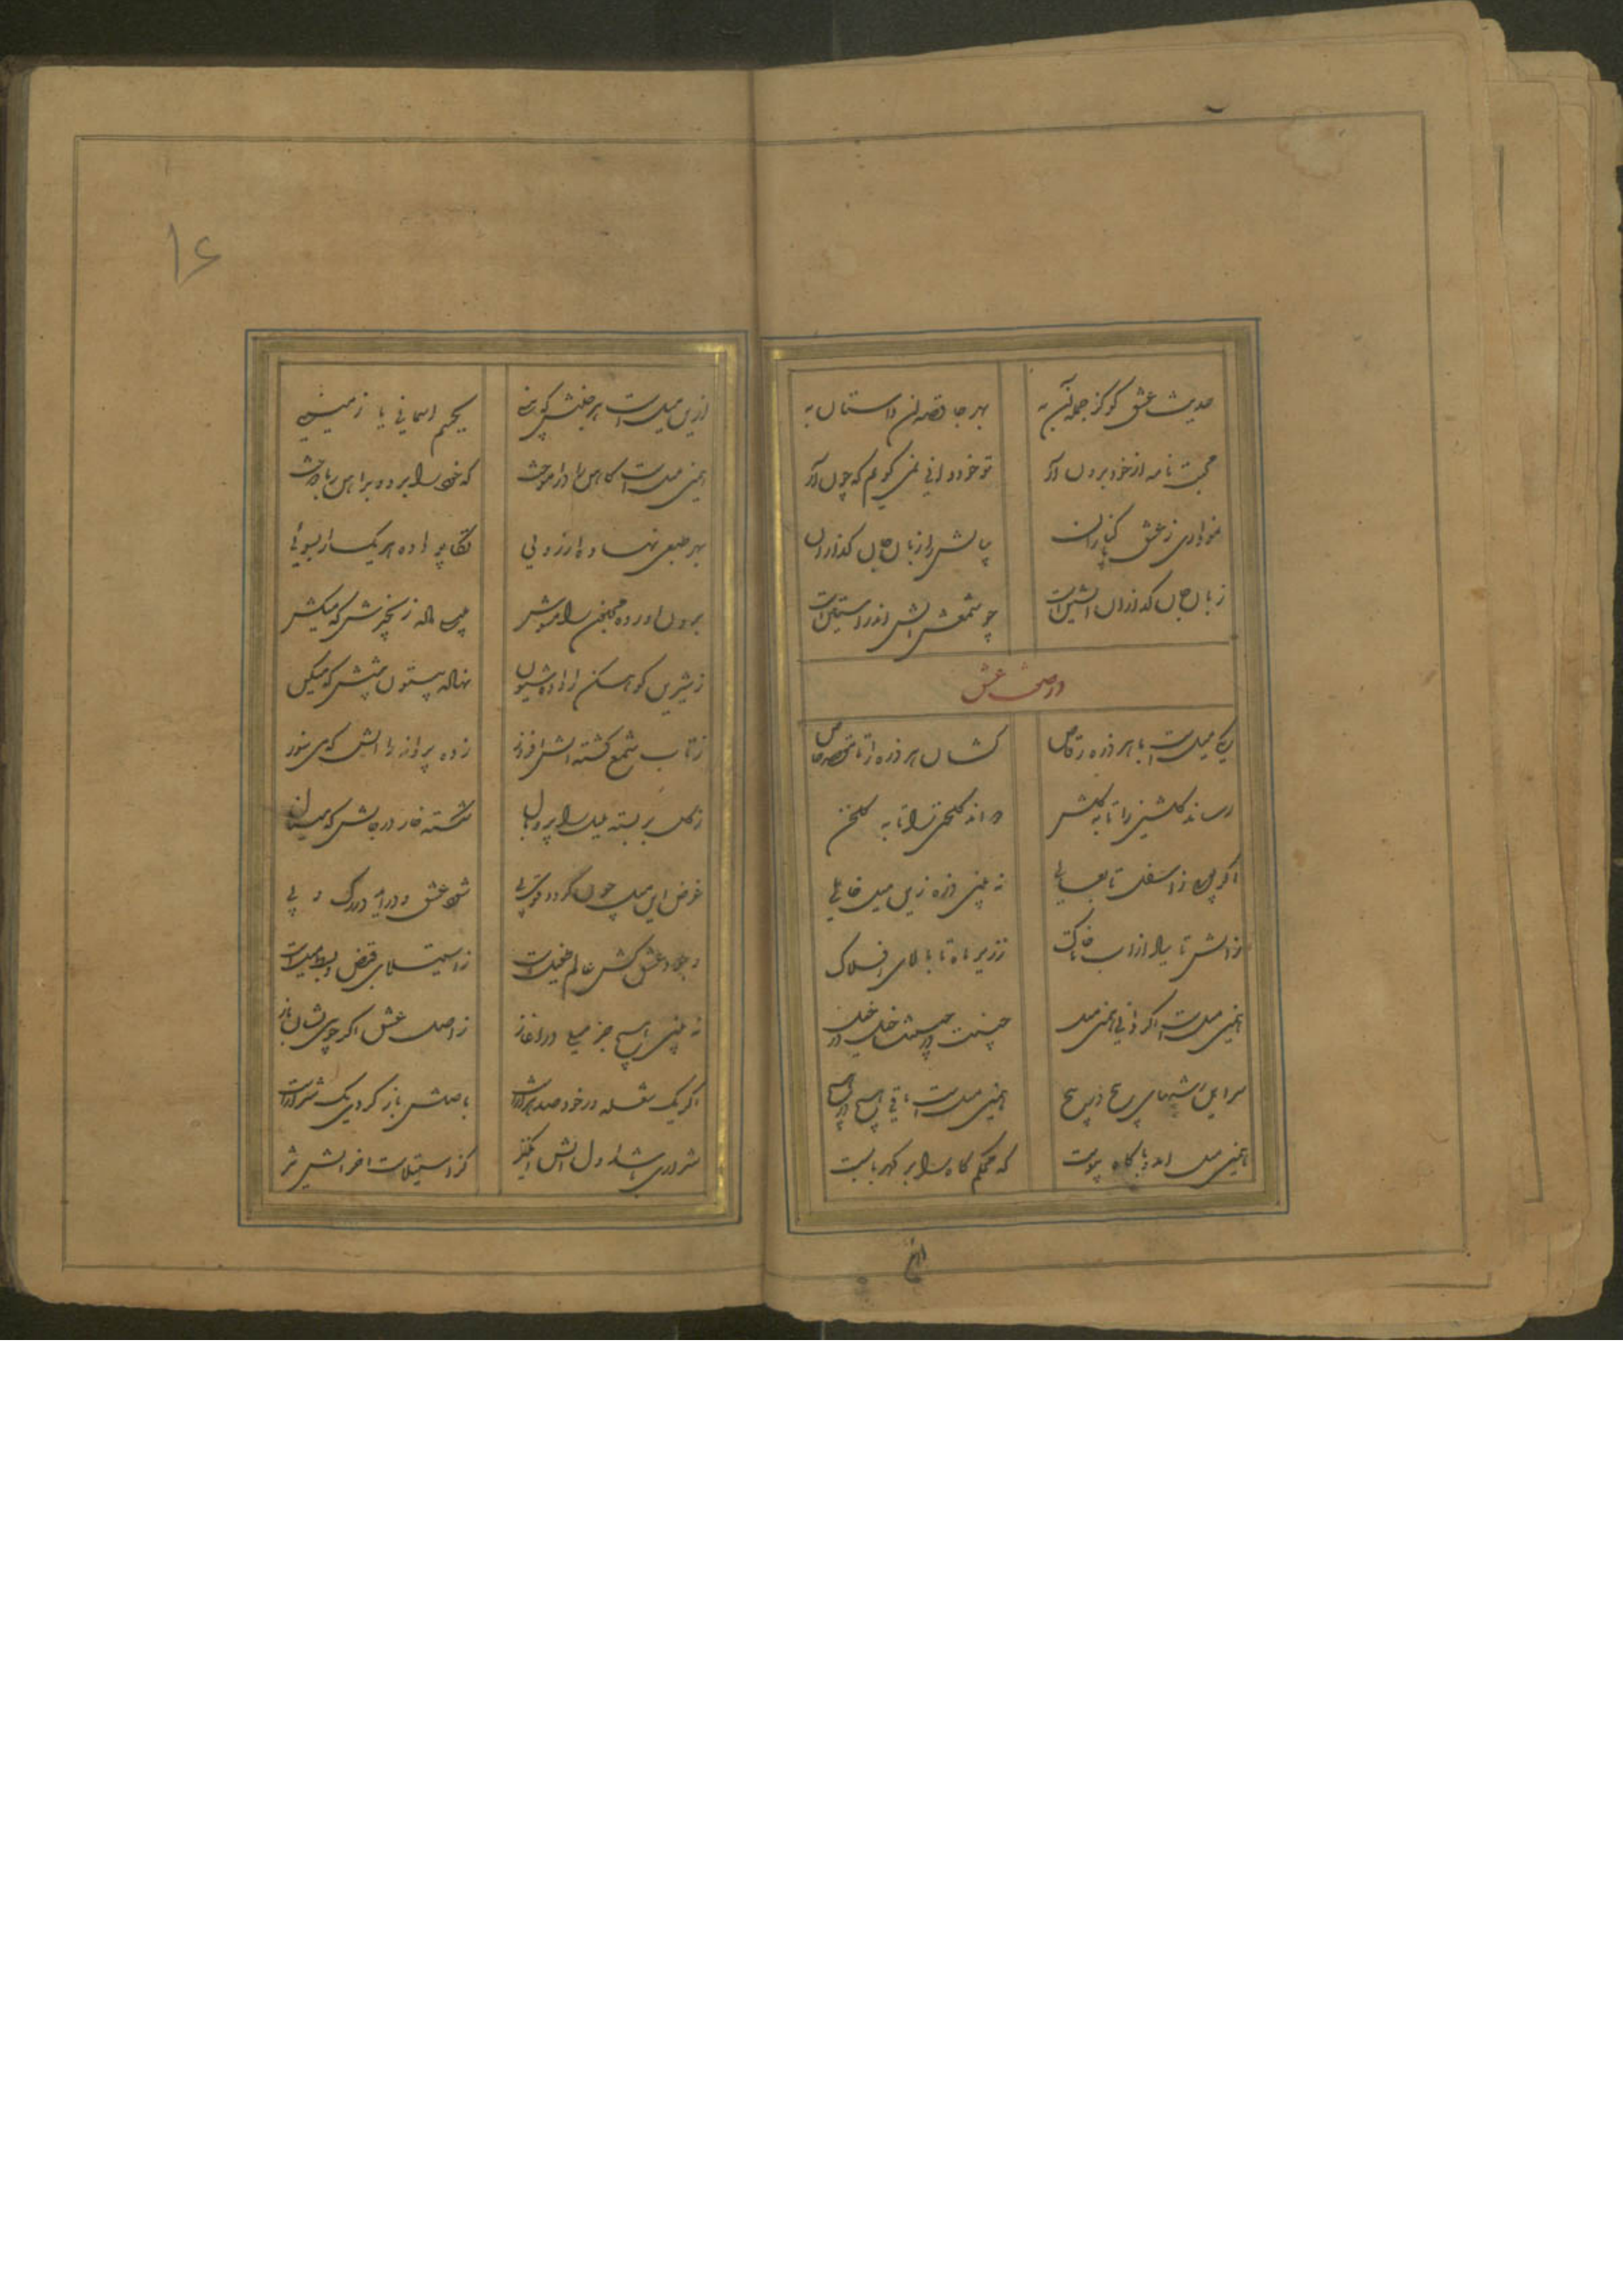 حدیث عشق گو کز جمله آن به بهر جا قصه آن داستان به
محبت نامه از خود برون آر تو خود دانی نمی گویم که چون آر
زبان جان گدازان آتشین است چو شمعش آتش اندر آستین است
در صفت عشق
یکی میلست با هر ذره رقاص کشان هر ذره را تا مقصد خاص
رساند گلشنی را تا به گلشن دواند گلخنی را تا به گلخن
اگر پویی ز اسفل تا بعالی نه بینی ذره زین میل خالی
ز آتش تا بباد از آب تا خاک ز زیر ماه تا بالای افلاک
همین میلست اگر دانی همین میل جنیبت در جنیبت خیل در خیل
سر این رشتهای پیچ در پیچ همین میلست باقی هیچ در هیچ
همین میل آمد و با کاه پیوست که محکم کاه را بر کهربا بست
ازین میلست هر جنبش که بینی بجسم آسمانی یا زمینی
همین میلست کاهن را در آموخت که خود را برد و بر آهن ربا دوخت
بهر طبعی نهاده آرزویی تکاپو داده هر یک را بسویی
برون آورده مجنون را مشوش به لیلی داده زنجیرش که میکش
ز شیرین کوهکن را داده شیون نهاده بیستون پیشش که میکن
ز تاب شمع گشته آتش افروز زده پروانه را آتش که می سوز
ز گل بر بسته بلبل را پر و بال شکسته خار در جانش که مینال
غرض این میل چون گردد قوی پی شود عشق و در آید در رگ و پی
وجود عشق کش عالم طفیل است ز استیلای قبض و بسط میل است
نه بینی هیچ جز میلی در آغاز ز اصل عشق اگر جویی نشان باز
اگر یک شعله در خود صد هزار است باصلش باز گردی یک شرار است
شراری باشد اول آتش انگیز کز استیلاست آخر آتش تیز
همین
۱۶